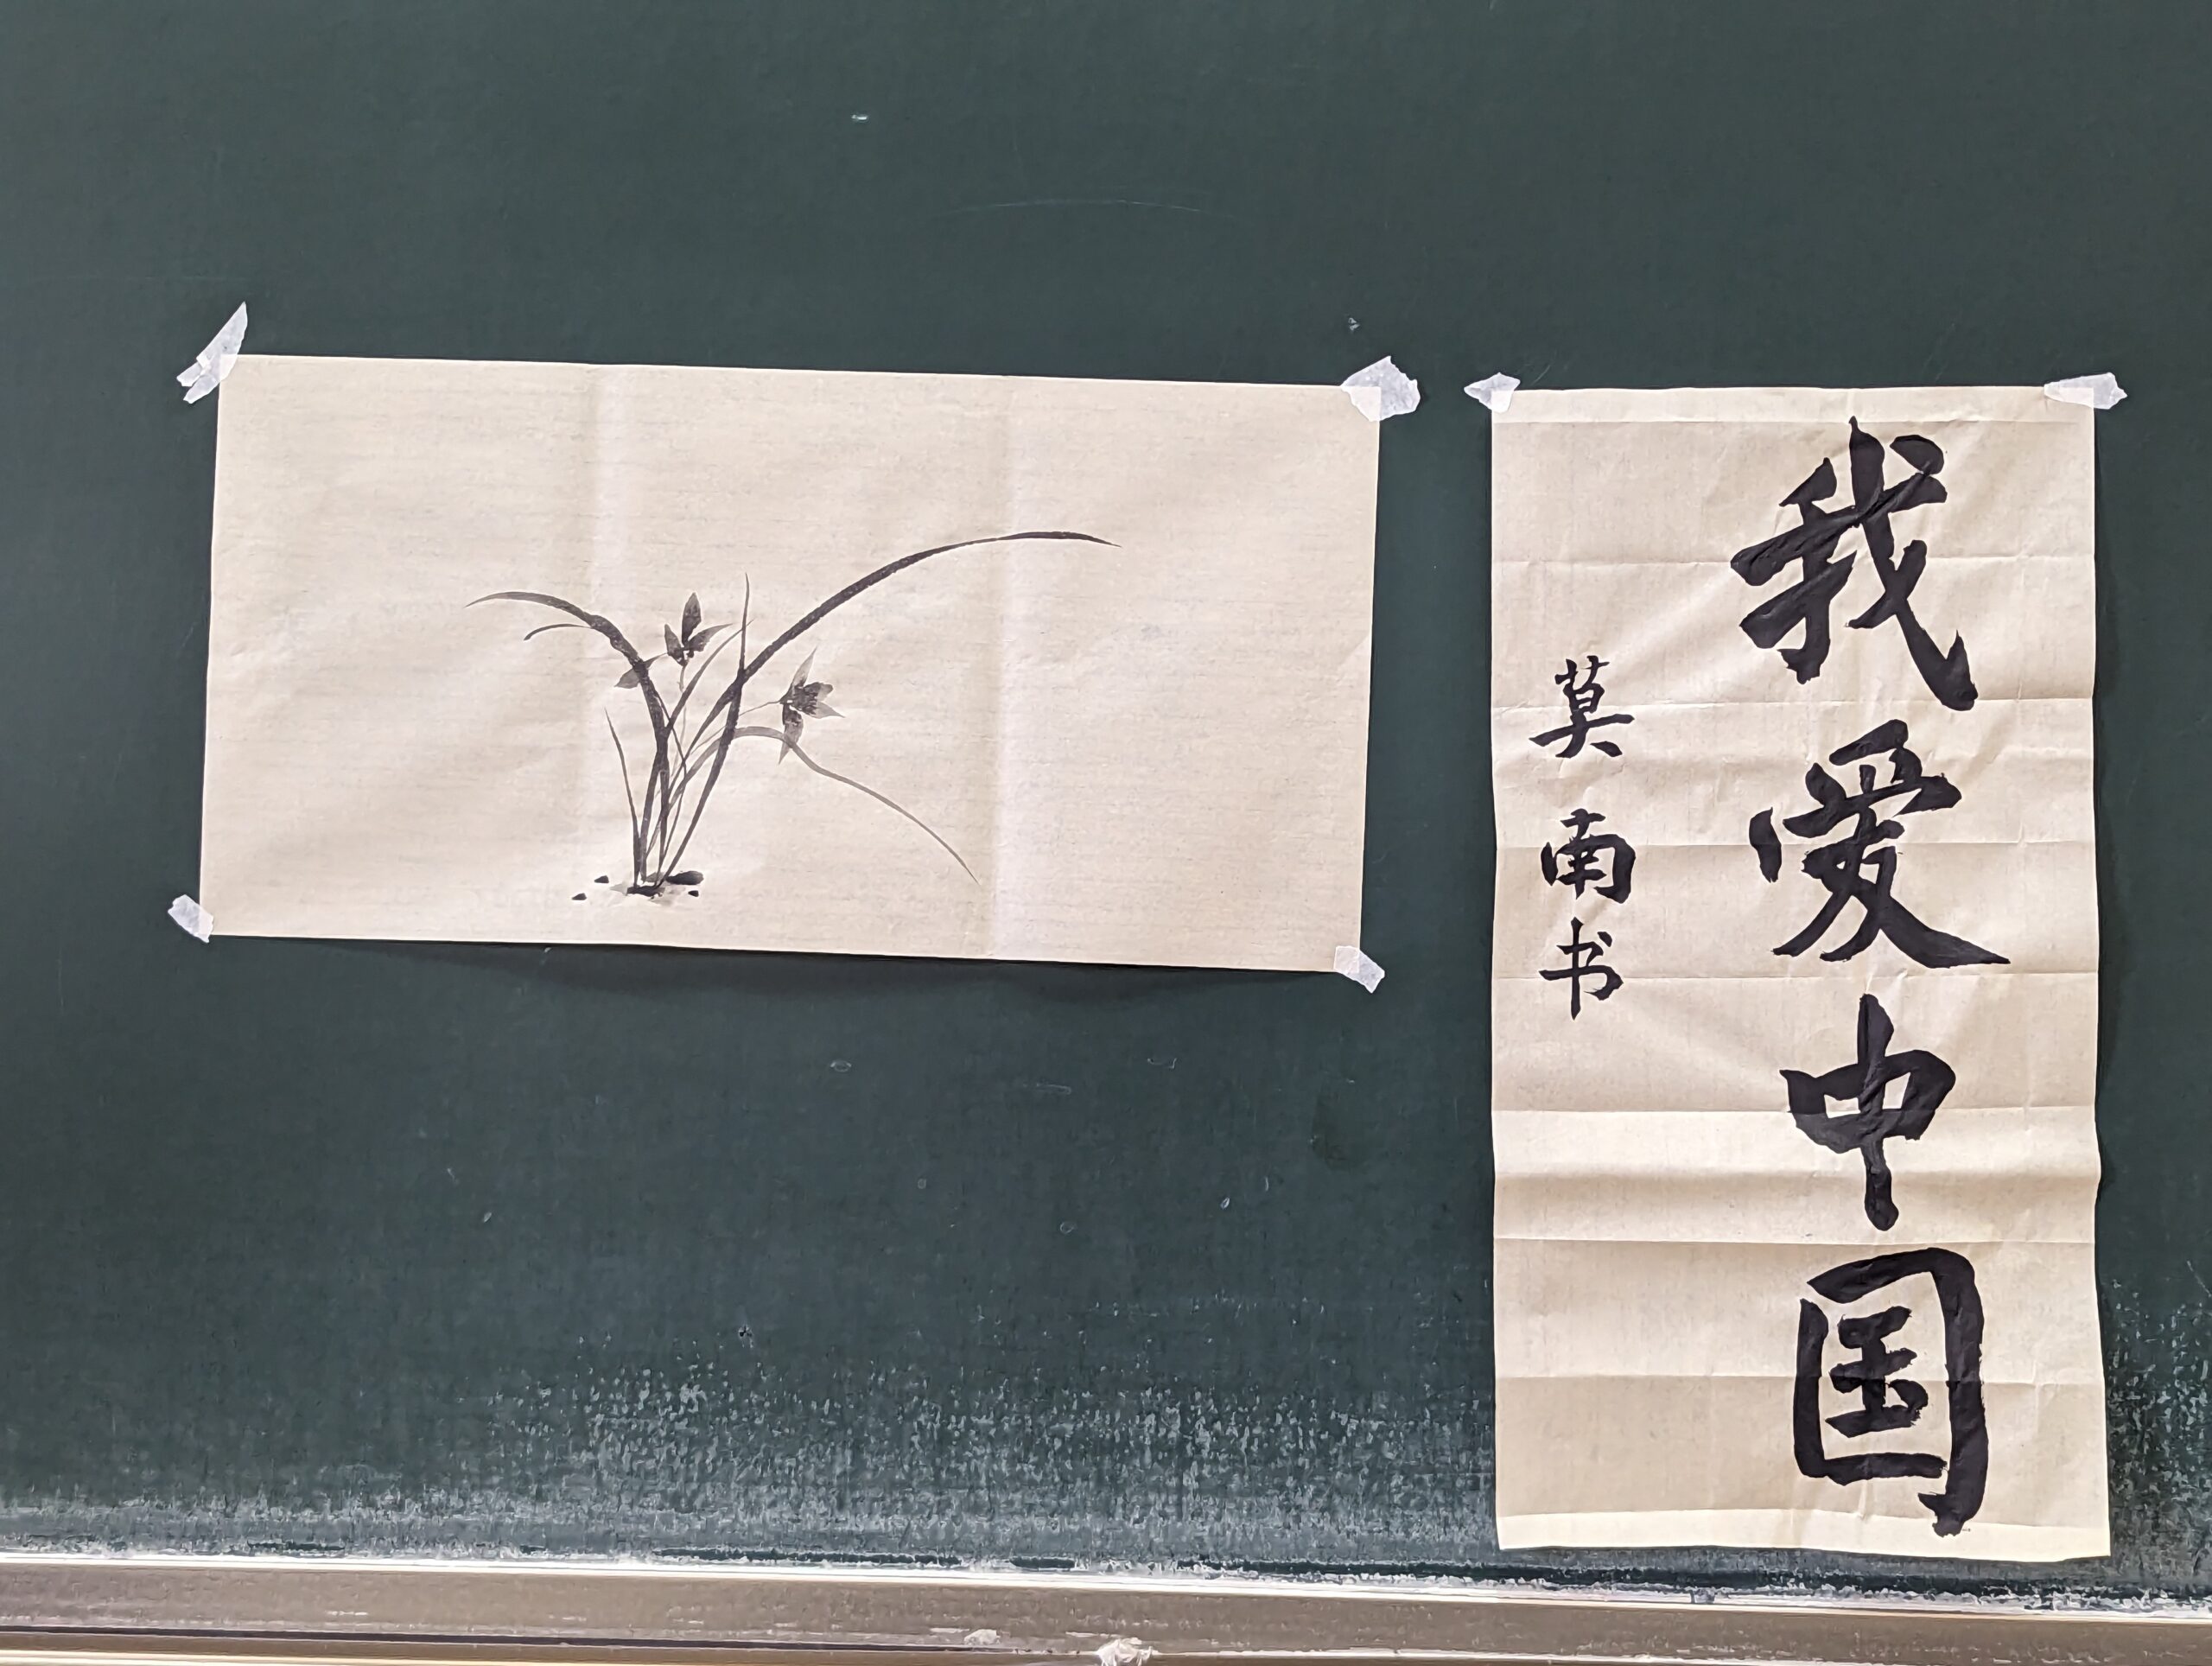 我爱中国
莫南书